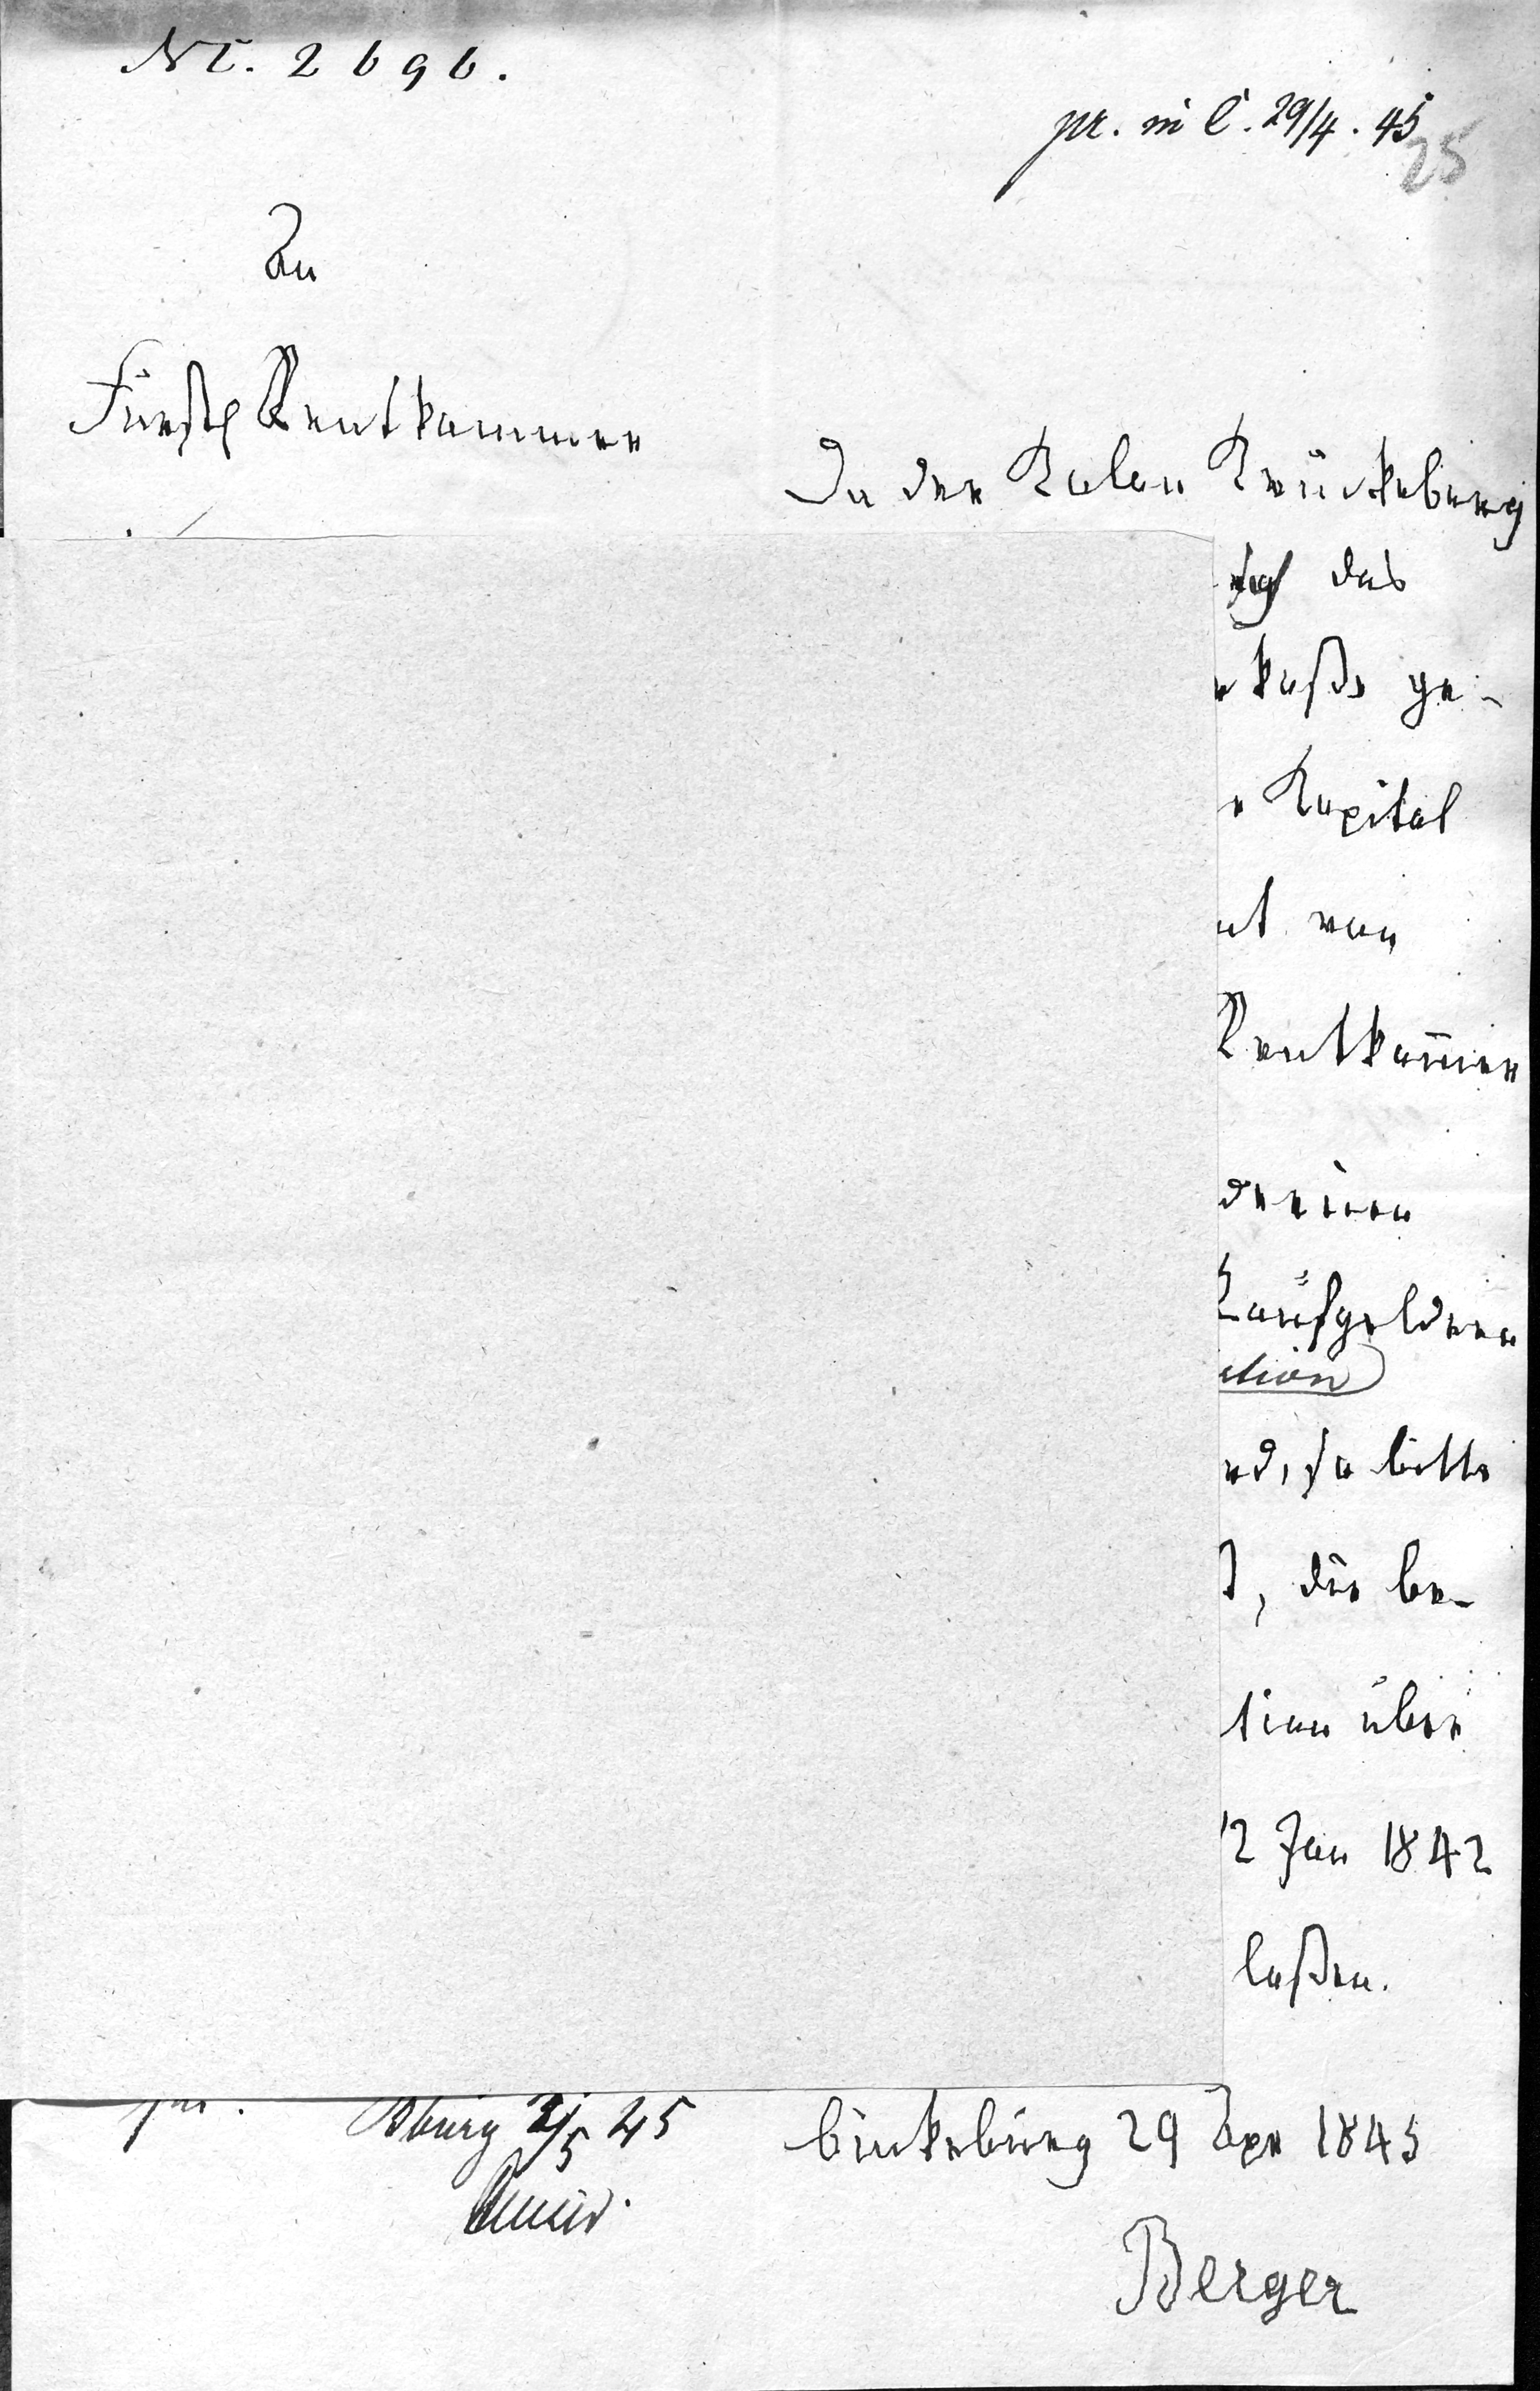 Nr. 2696.
pr. in C. 29/4. 45
25
An
Fürstl Rentkammer
Da der Kolon Krückeberg
das
kaße ge-
Kapital
von
Rentkam̅er
Kaufgeldern
so bitte
, die be-
über
12 Jan 1842
laßen.
Bburg 2/5 45
Bückeburg 29 Apr 1845
Berger